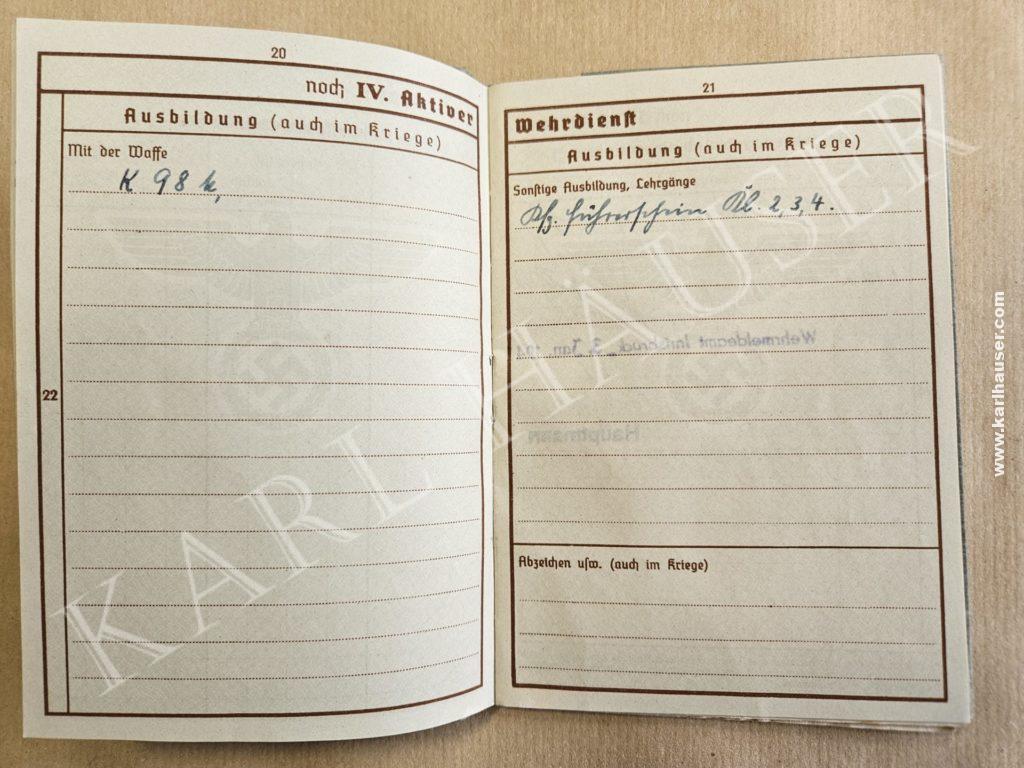 20
noch IV. Aktiver
Ausbildung (auch im Kriege)
Mit der Waffe
K 98 k,
22
21
Wehrdienst
Ausbildung (auch im Kriege)
Sonstige Ausbildung, Lehrgänge
Kfz. Führerschein Kl. 2, 3, 4.
Wehrmeldeamt Innsbruck 3. Jan.
Hauptmann
Abzeichen usw. (auch im Kriege)
KARL HÄUSER
www.karlhauser.com